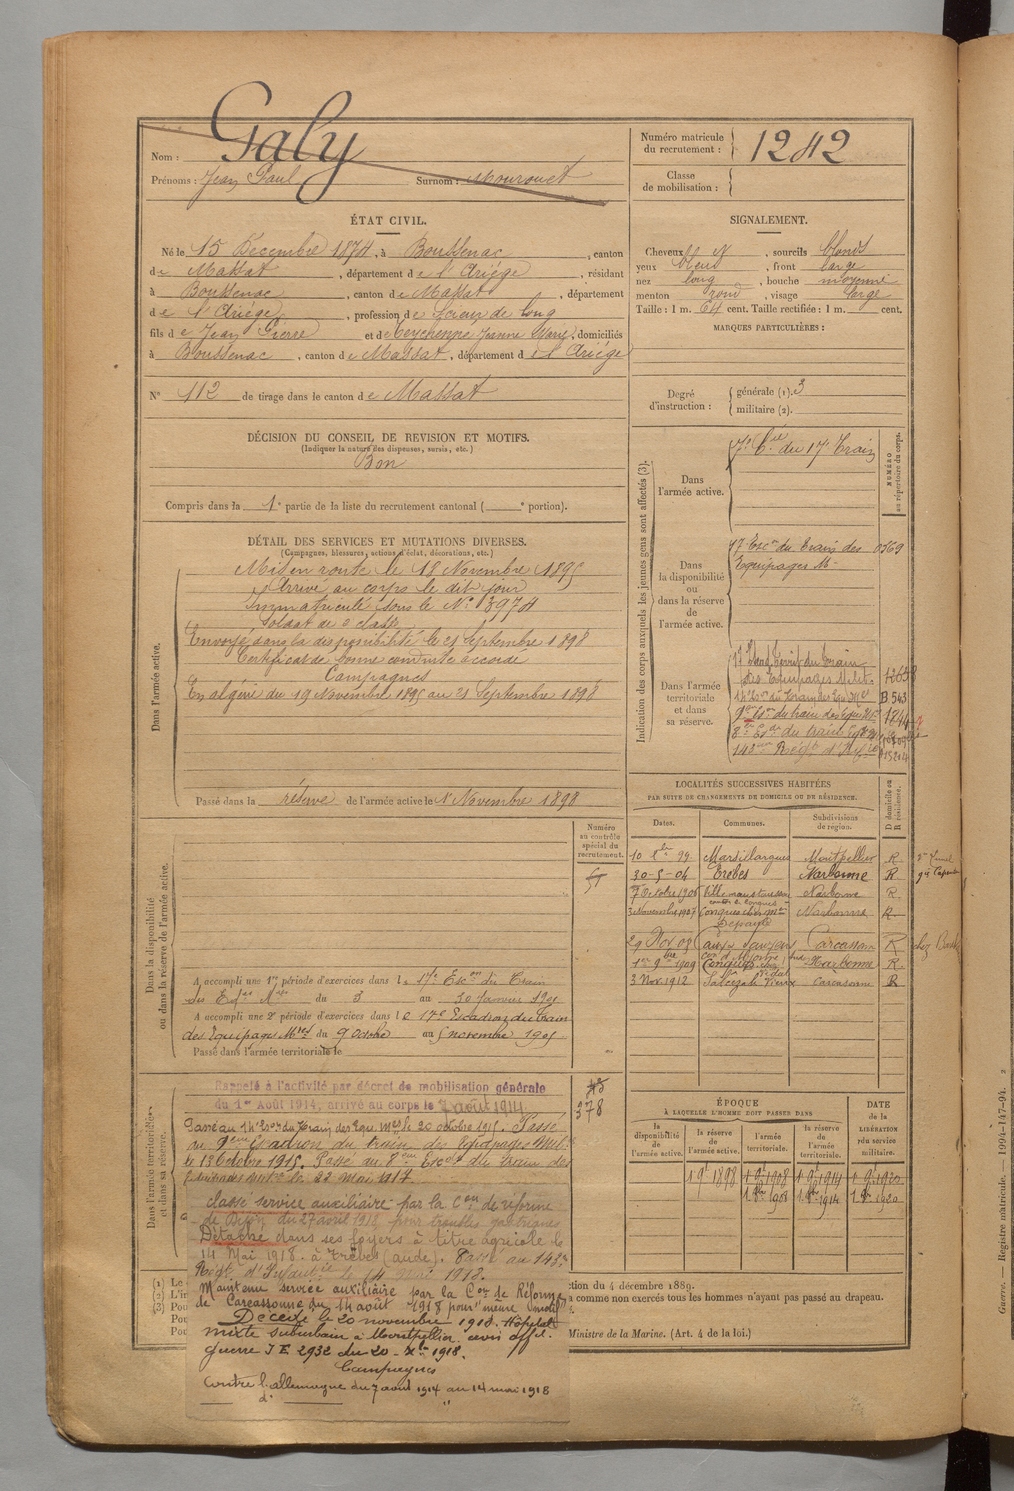 Nom : Galy
Prénoms : Jean Paul Surnom : Mourouet
Numéro matricule du recrutement : 1242
Classe de mobilisation :
ÉTAT CIVIL.
Né le 15 Décembre 1874, à Boussenac, canton
de Massat, département de l'Ariège, résidant
à Boussenac, canton de Massat, département
de l'Ariège, profession de scieur de long
fils de Jean Pierre et de Teychenne Jeanne Marie, domiciliés
à Boussenac, canton de Massat, département de l'Ariège
N° 112 de tirage dans le canton de Massat
SIGNALEMENT.
Cheveux bl, sourcils blonds
yeux bleus, front large
nez long, bouche moyenne
menton rond, visage large
Taille : 1 m. 64 cent. Taille rectifiée : 1 m. cent.
MARQUES PARTICULIÈRES :
Degré d'instruction : générale (1). 3
militaire (2).
DÉCISION DU CONSEIL DE REVISION ET MOTIFS.
(Indiquer la nature des dispenses, sursis, etc.)
Bon
Compris dans la 1e partie de la liste du recrutement cantonal ( e portion).
DÉTAIL DES SERVICES ET MUTATIONS DIVERSES.
(Campagnes, blessures, actions d'éclat, décorations, etc.)
Dans l'armée active.
Mis en route le 18 Novembre 1895
Arrivé au corps le dit jour
Immatriculé sous le N° 13974
Soldat de 2e classe
Envoyé dans la disponibilité le 21 Septembre 1898
Certificat de bonne conduite accordé
Campagnes
En algérie du 19 Novembre 1895 au 21 Septembre 1898
Passé dans la réserve de l'armée active le 1 Novembre 1898
Indication des corps auxquels les jeunes gens sont affectés (3).
NUMÉRO au répertoire du corps.
Dans l'armée active.
7e Cie du 17e Train
Dans la disponibilité ou dans la réserve de l'armée active.
17 Escon du Train des 0569
Equipages M.
Dans l'armée territoriale et dans sa réserve.
17 Escad. Territ. du Train
des Equipages Milit.
14e Esc. du Train des Eq. Mres B.543
9eme Esc. du train des Eq. Mil.
8e Esc. du train Eq. M.
143eme Régt d'Inf. 15214
LOCALITÉS SUCCESSIVES HABITÉES
PAR SUITE DE CHANGEMENTS DE DOMICILE OU DE RÉSIDENCE.
Dates. Communes. Subdivisions de région. D domicile ou R résidence.
10 8bre 99 Marsillargues Montpellier R
30-5-04 Trèbes Narbonne R
7 Octobre 1906 Narbonne R
3 Novembre 1907 Conques Narbonne R.
29 Nov 09 Carcassonne R
1er 9bre 1909 Conques Narbonne R.
3 Nov. 1912 Carcassonne R
Dans la disponibilité ou dans la réserve de l'armée active.
Numéro au contrôle spécial du recrutement.
A accompli une 1re période d'exercices dans le 17e Escon du Train
des Eqges Mres du 3 au 30 Janvier 1901
A accompli une 2e période d'exercices dans le 17e Escadron du train
des Equipages Mres du 9 octobre au 5 novembre 1905
Passé dans l'armée territoriale le
Dans l'armée territoriale et dans sa réserve.
378
Rappelé à l'activité par décret de mobilisation générale
du 1er Août 1914, arrivé au corps le 7 août 1914
Passé au 14e Escon du Train des Equ. Mres le 20 octobre 1915. Passé
au 9eme Escadron du train des Equipages Mil.
le 13 Octobre 1915. Passé au 8eme Escon du train des
Equipages Milit. le 22 mai 1917
Classé service auxiliaire par la Con de réforme
de Dijon du 27 avril 1918 pour troubles gastriques
Détaché dans ses foyers à titre agricole le
14 Mai 1918. à Trèbes (aude). Passé au 143e
Régt d'Infanterie le 14 Mai 1918.
Maintenu service auxiliaire par la Con de Réforme
de Carcassonne du 14 août 1918 pour même motif
Décédé le 20 novembre 1918. Hôpital
mixte suburbain à Montpellier. avis offl.
guerre J E 2932 du 20-Xbre 1918.
Campagnes
Contre l'allemagne du 7 août 1914 au 14 mai 1918
d° "
ÉPOQUE
À LAQUELLE L'HOMME DOIT PASSER DANS
la disponibilité de l'armée active. la réserve de l'armée active. l'armée territoriale. la réserve de l'armée territoriale.
DATE de la LIBÉRATION du service militaire.
1 9e 1898 1 9e 1908 1 9e 1914 1 9e 1920
1 8bre 1908 1 8bre 1914 1 8bre 1920
(1) Le
(2) L'in
(3) Pou
Pou
ction du 4 décembre 1889.
a comme non exercés tous les hommes n'ayant pas passé au drapeau.
Ministre de la Marine. (Art. 4 de la loi.)
Guerre. — Registre matricule. — 1994-147-94.